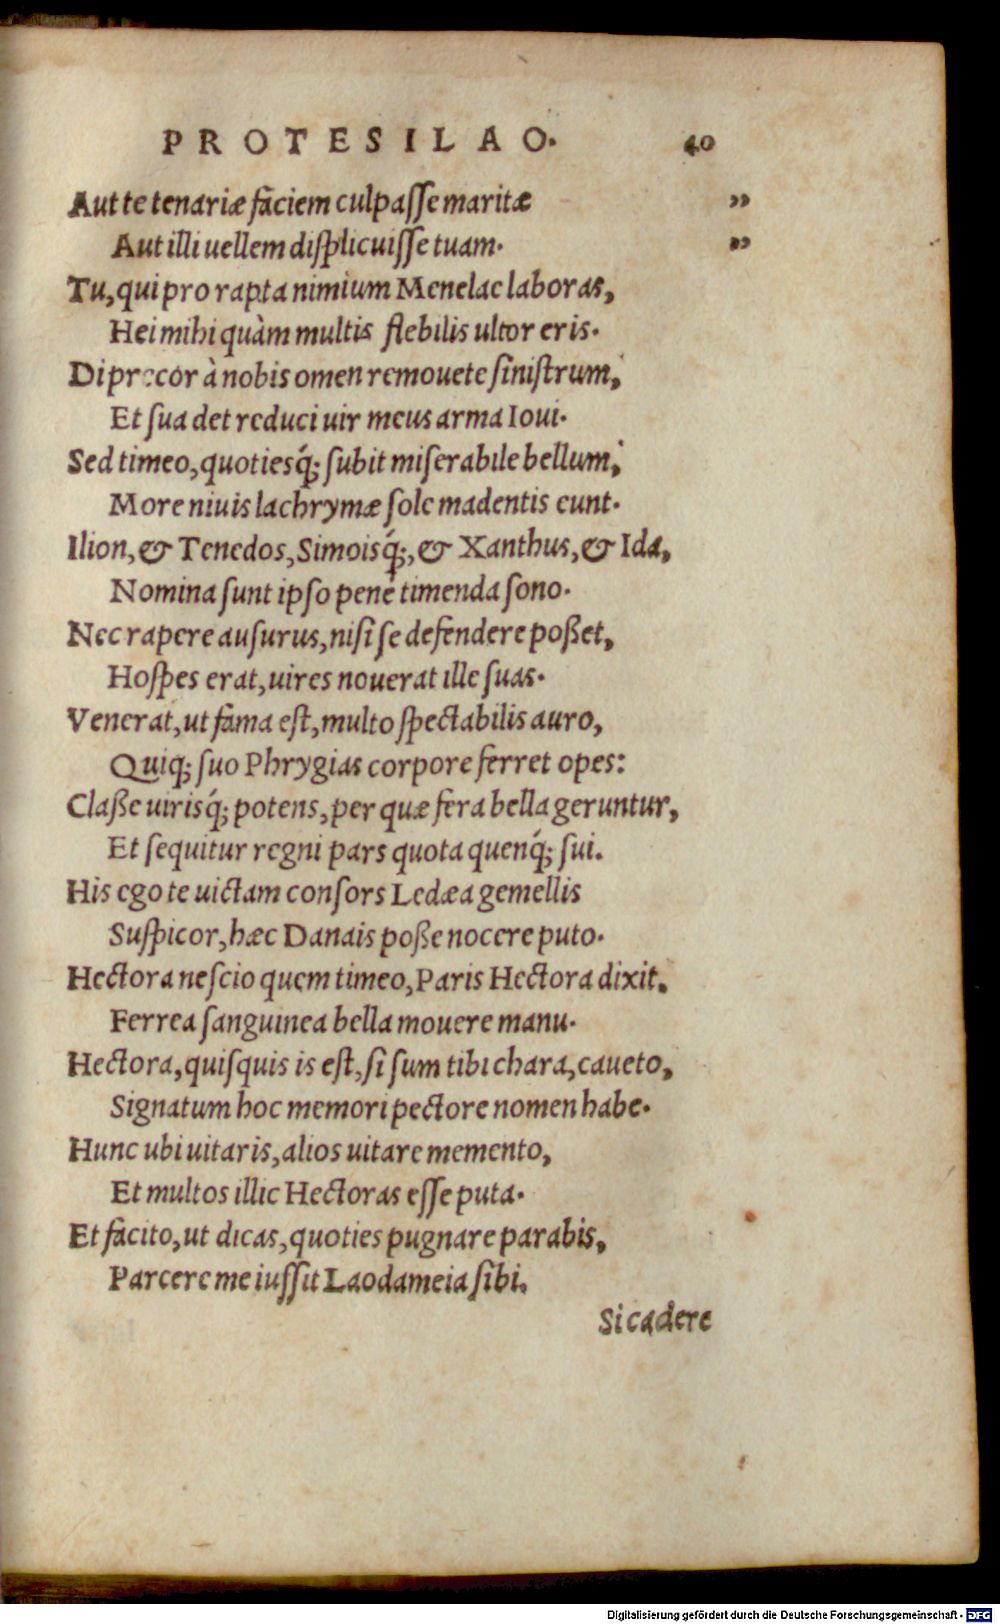 PROTESILAO. 40
Aut te tenariæ faciem culpaſſe maritæ ”
Aut illi uellem diſplicuiſſe tuam. ”
Tu, qui pro rapta nimium Menelae laboras,
Hei mihi quàm multis flebilis ultor eris.
Di precor à nobis omen remouete ſiniſtrum,
Et ſua det reduci uir meus arma Ioui.
Sed timeo, quotiesq́; ſubit miſerabile bellum,
More niuis lachrymæ ſole madentis eunt.
Ilion, & Tenedos, Simoisq́;, & Xanthus, & Ida,
Nomina ſunt ipſo pene timenda ſono.
Nec rapere auſurus, niſi ſe defendere poßet,
Hoſpes erat, uires nouerat ille ſuas.
Venerat, ut fama eſt, multo ſpectabilis auro,
Quiq; ſuo Phrygias corpore ferret opes:
Claße uirisq́; potens, per quæ fera bella geruntur,
Et ſequitur regni pars quota quenq́; ſui.
His ego te uictam conſors Ledæa gemellis
Suſpicor, hæc Danais poße nocere puto.
Hectora neſcio quem timeo, Paris Hectora dixit.
Ferrea ſanguinea bella mouere manu.
Hectora, quiſquis is eſt, ſi ſum tibi chara, caueto,
Signatum hoc memori pectore nomen habe.
Hunc ubi uitaris, alios uitare memento,
Et multos illic Hectoras eſſe puta.
Et facito, ut dicas, quoties pugnare parabis,
Parcere me iuſſit Laodameia ſibi.
Si cadere
Digitalisierung gefördert durch die Deutsche Forschungsgemeinschaft - DFG